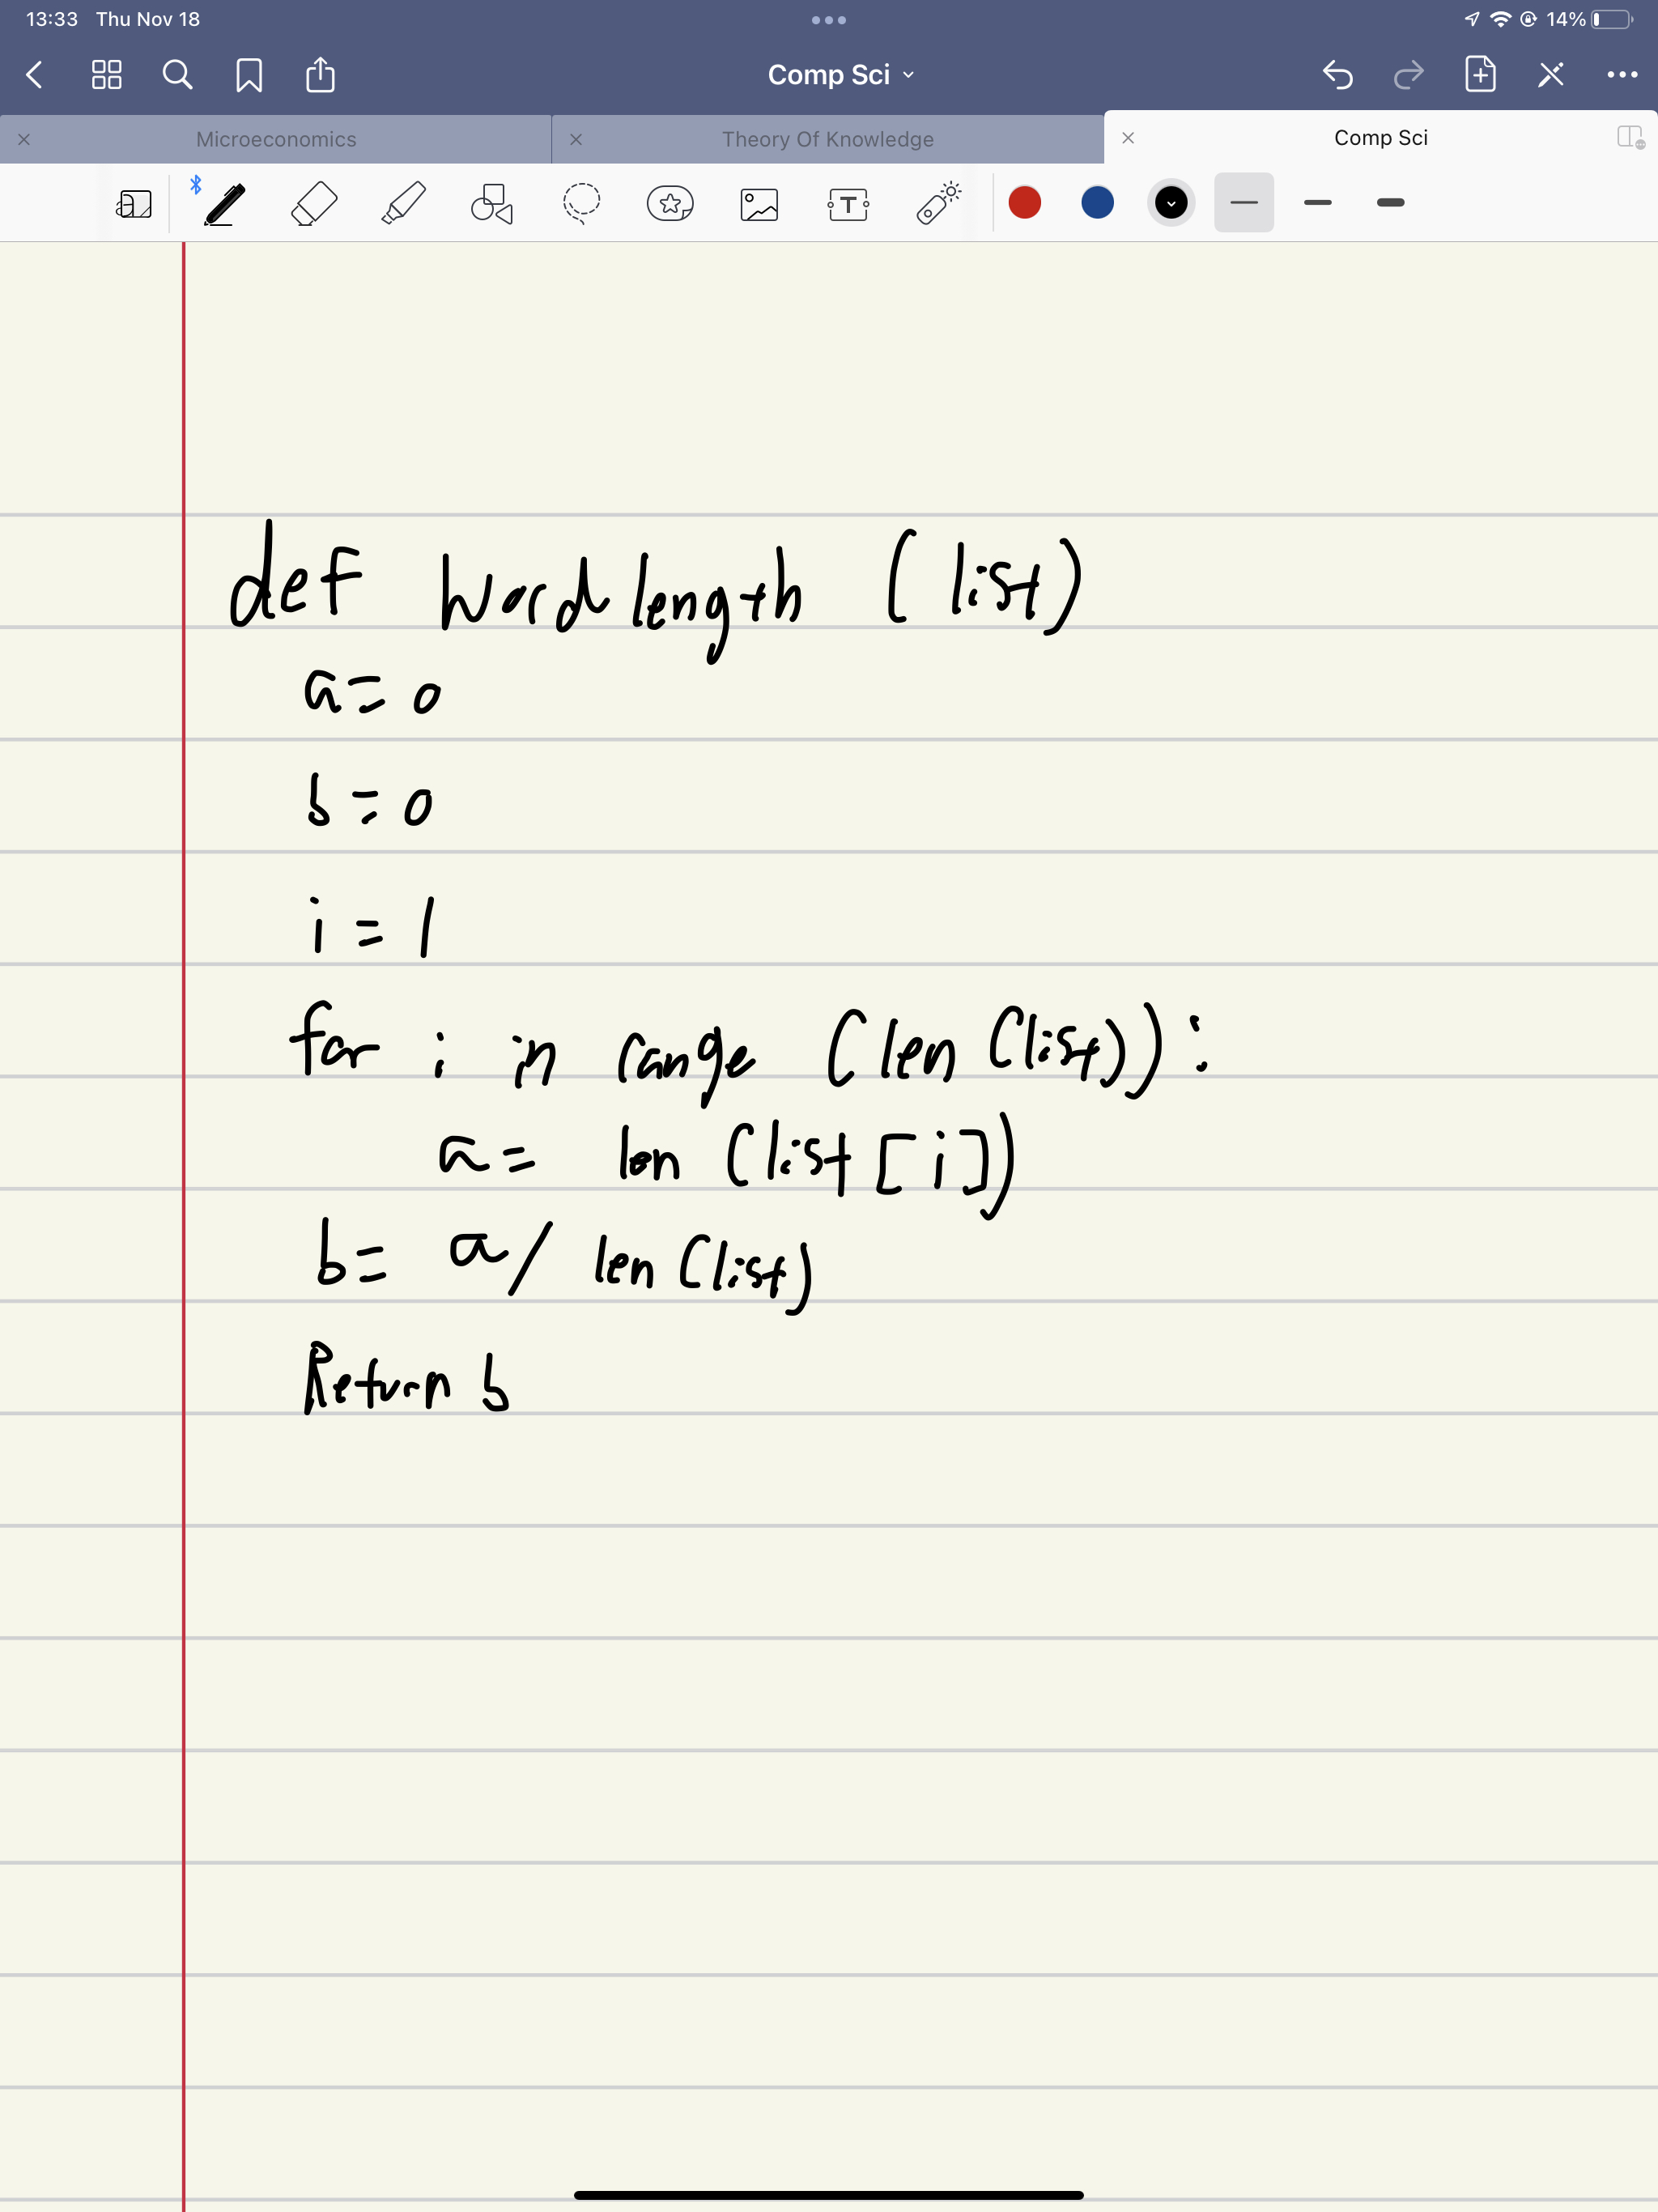 13:33 Thu Nov 18 14%
Comp Sci
Microeconomics Theory Of Knowledge Comp Sci
def Wordlength (list)
a = 0
b = 0
i = 1
for i in range (len (list)) :
a = len (list [i])
b = a / len (list)
Return b